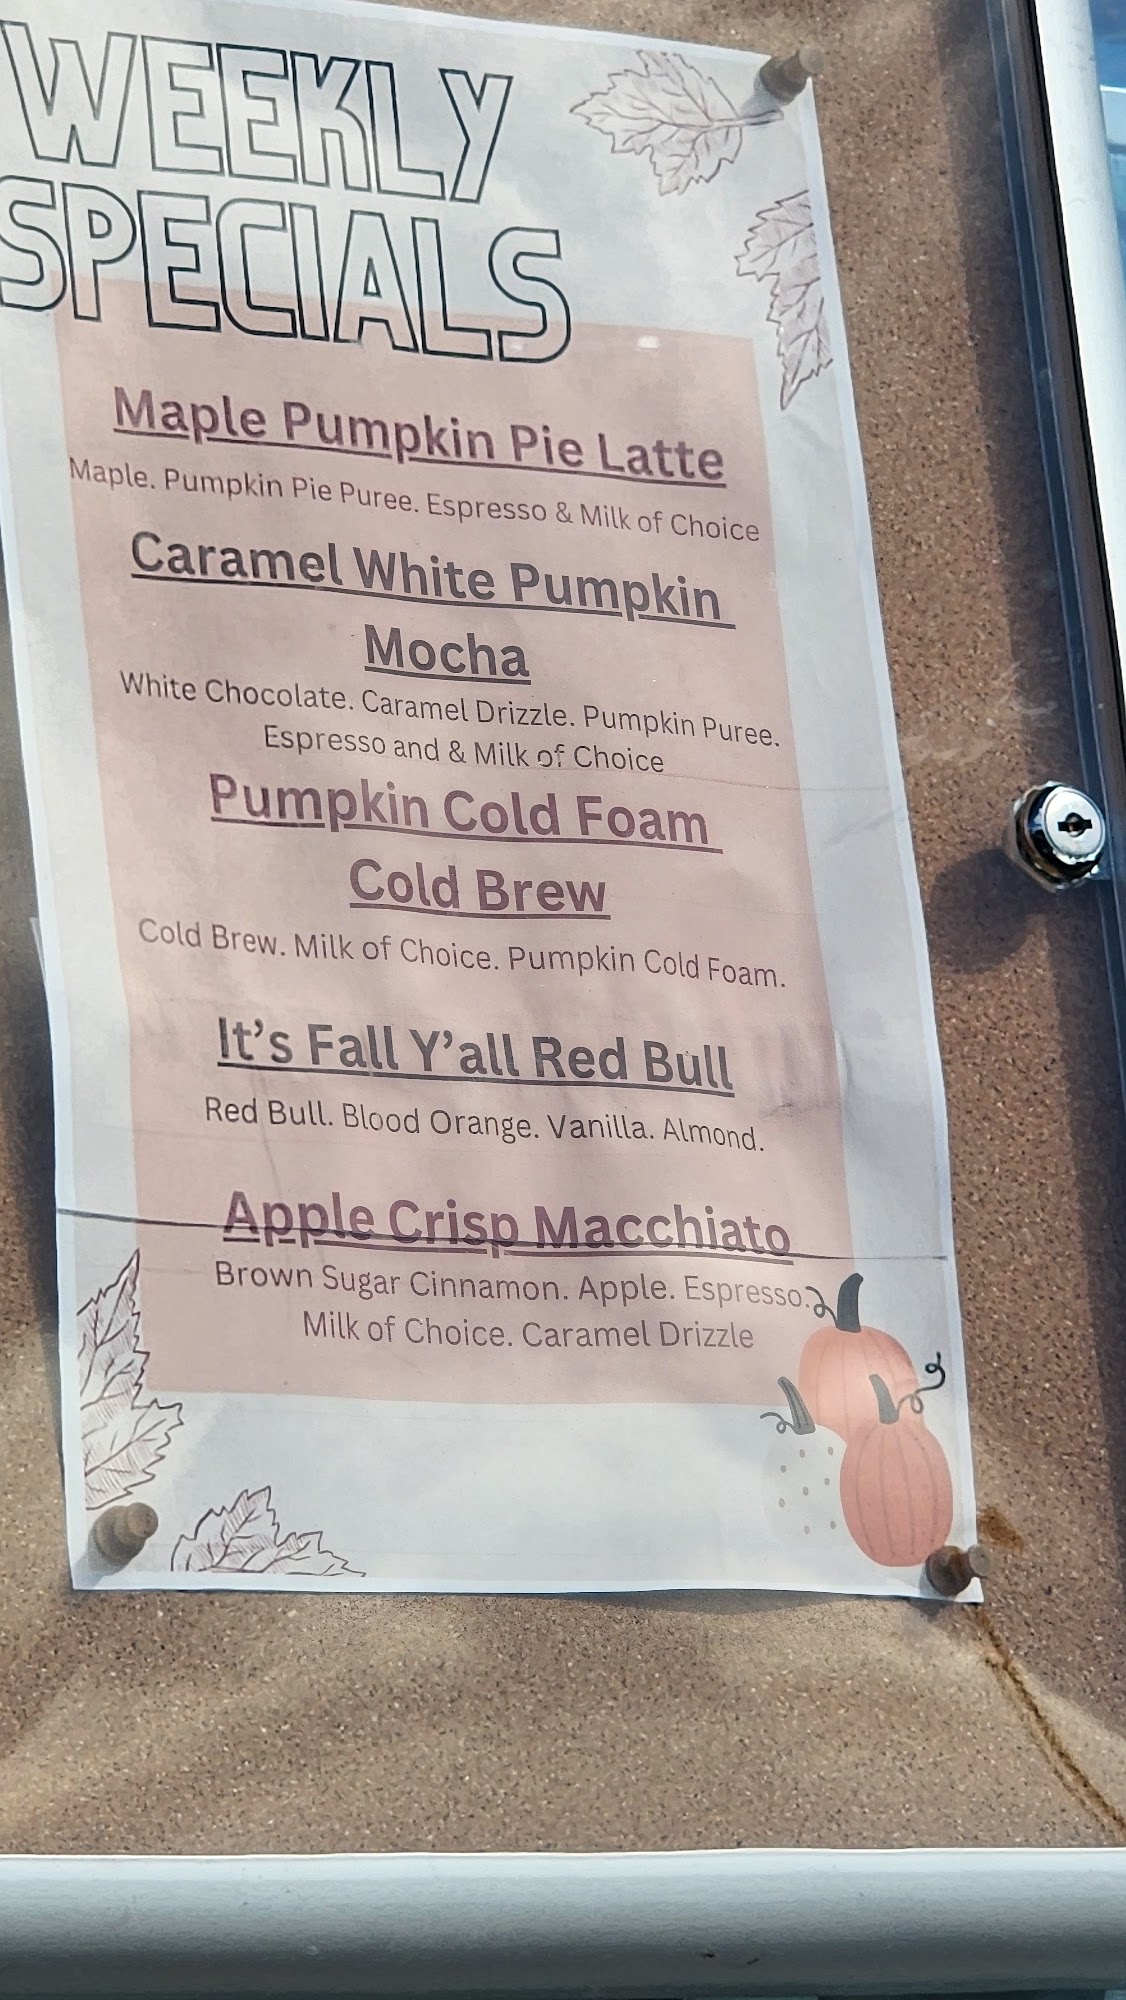 WEEKLY
SPECIALS
Maple Pumpkin Pie Latte
Maple. Pumpkin Pie Puree. Espresso & Milk of Choice
Caramel White Pumpkin
Mocha
White Chocolate. Caramel Drizzle. Pumpkin Puree.
Espresso and & Milk of Choice
Pumpkin Cold Foam
Cold Brew
Cold Brew. Milk of Choice. Pumpkin Cold Foam.
It's Fall Y'all Red Bull
Red Bull. Blood Orange. Vanilla. Almond.
Apple Crisp Macchiato
Brown Sugar Cinnamon. Apple. Espresso.
Milk of Choice. Caramel Drizzle